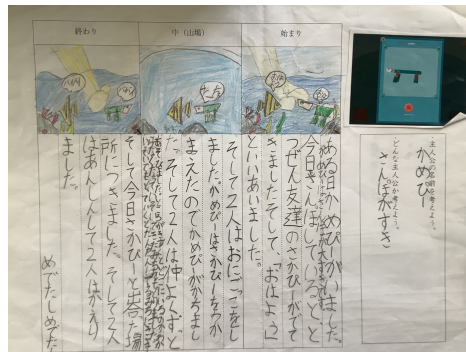 ・主人公の名前を考えよう。
かめぴー
・どんな主人公か考えよう。
さんぽがすき
始まり
中(山場)
終わり
ある日かめぴーがいました。
今日さんぽしていると、と
つぜん友達のさかぴーがでて
きました。そして、「おはよう」
といいあいました。
そして2人はおにごっこをし
ました。かめぴーはさかぴーをつか
まえたのでかめぴーがかちまし
た。そして2人は仲よくずっと
そして今日さかぴーと出合た場
所につきました。そして2人
はあんしんして2人はかえり
ました。
めでたしめでた